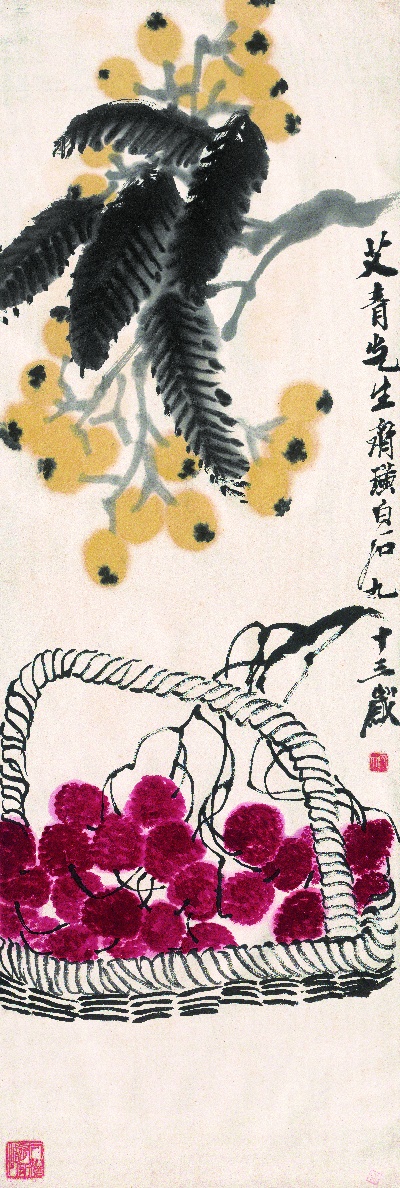 艾青先生齊璜白石九十三歲